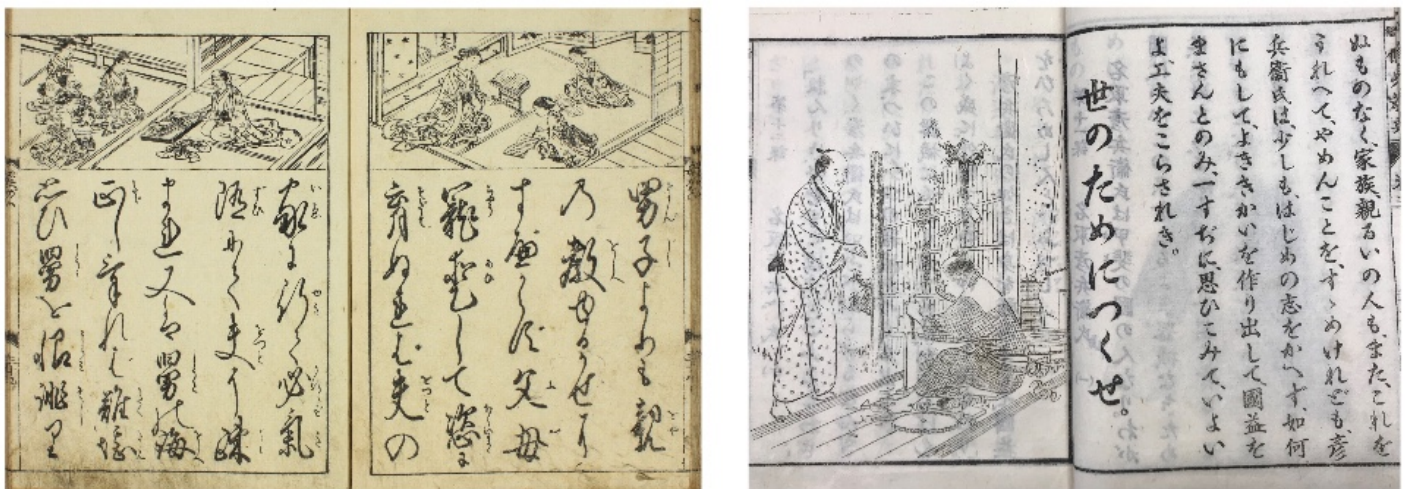 男子よりも親
の教ゆるがせに
すべからず父母
寵愛して恣に
育ぬれば夫の
家に行て必氣
随にて夫に疎
まれ又は舅の誨
正ければ難堪
思ひ舅を恨誹り
ぬものなく、家族親るいの人も、また、これを
うれへて、やめんことを、すゝめけれども、彦
兵衛氏は、少しも、はじめの志をかへず、如何
にもして、よききかいを作り出して、國益を
生さんとのみ、一すぢに、思ひこみて、いよい
よ、工夫をこらされき。
世のためにつくせ。